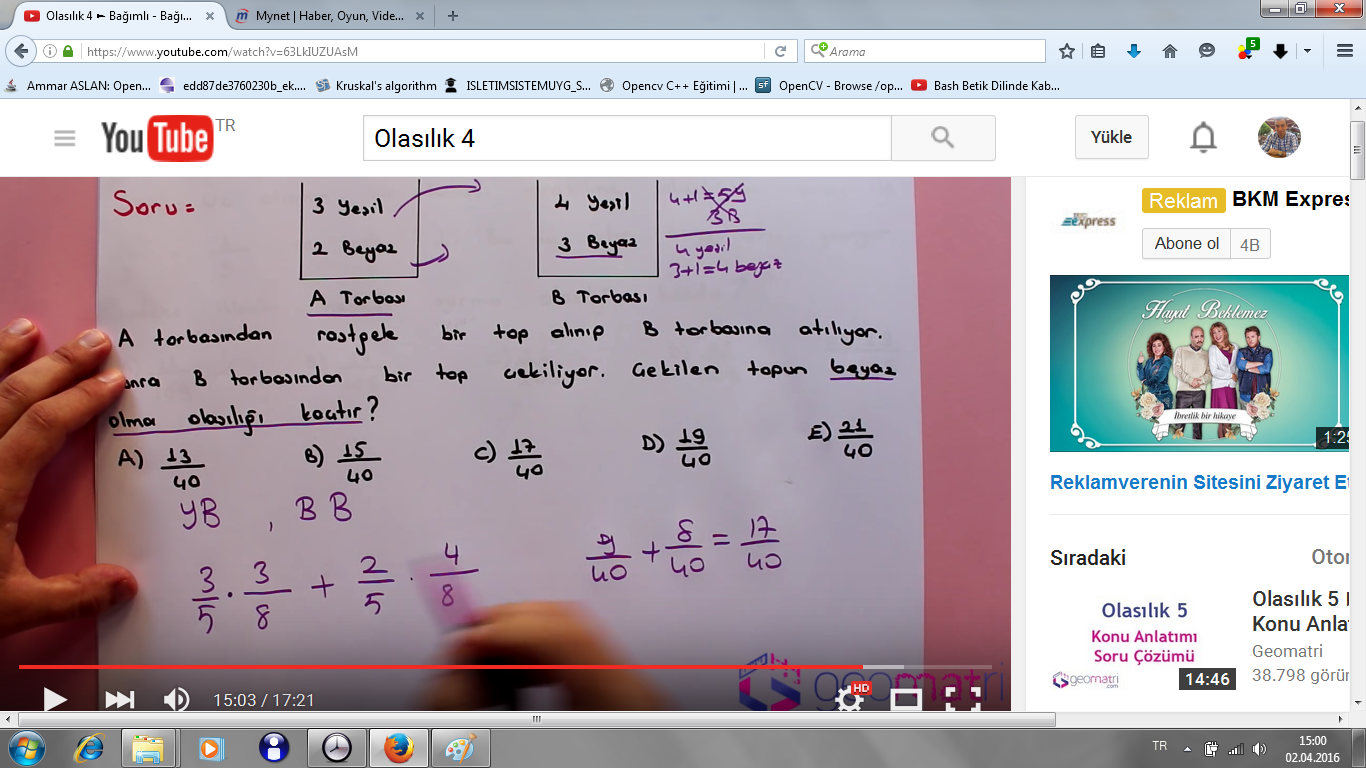 Olasılık 4 ► Bağımlı - Bağı...
Mynet | Haber, Oyun, Vide...
https://www.youtube.com/watch?v=63LkIUZUAsM
Arama
5
Ammar ASLAN: Open...
edd87de3760230b_ek....
Kruskal's algorithm
ISLETIMSISTEMUYG_S...
Opencv C++ Eğitimi | ...
OpenCV - Browse /op...
Bash Betik Dilinde Kab...
YouTube TR
Olasılık 4
Yükle
Soru=
3 Yeşil
2 Beyaz
A Torbası
4 Yeşil
3 Beyaz
B Torbası
4+1=5y
3B
4 yeşil
3+1=4 beyaz
A torbasından rastgele bir top alınıp B torbasına atılıyor.
onra B torbasından bir top çekiliyor. Çekilen topun beyaz
olma olasılığı kaçtır?
A) 13/40 B) 15/40 C) 17/40 D) 19/40 E) 21/40
YB , BB
3/5 . 3/8 + 2/5 . 4/8
9/40 + 8/40 = 17/40
geomatri
15:03 / 17:21
HD
Reklam BKM Expres
express
Abone ol 4B
Hayat Beklemez
İbretlik bir hikaye
1:25
Reklamverenin Sitesini Ziyaret Et
Sıradaki
Otom
Olasılık 5
Konu Anlatımı
Soru Çözümü
geomatri.com
14:46
Olasılık 5
Konu Anla
Geomatri
38.798 görün
TR
15:00
02.04.2016